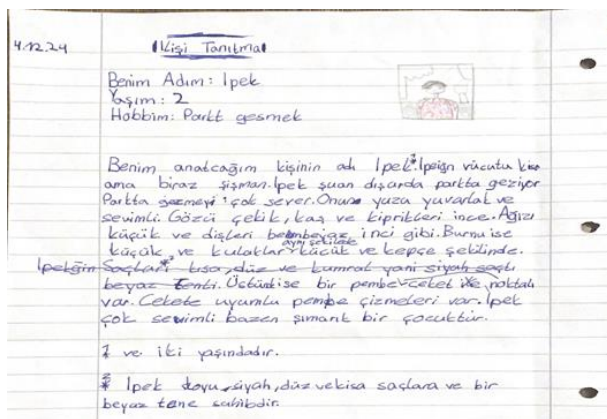 4.12.24
Kişi Tanıtma
Benim Adım: Ipek
Yaşım: 2
Hobbim: Parkt gesmek
Benim anatcağım kişinin adı Ipek. Ipeign vücutu kisa
ama biraz şişman. Ipek şuan dışarda parkta geziyor
Parkta gezmeyi çok sever. Onun yuza yuvarlak ve
sevimli. Gözü çekik, kaş ve kiprikleri ince. Ağızı
küçük ve dişleri bembeyaz inci gibi. Burnu ise
küçük ve kulaklar aynı şekilde kücük ve kepçe şeklinde.
Ipeğin Saçları kısa, düz ve kumral yani siyah saçlı
beyaz tenli. Üstünde ise bir pembe ceket ve noktalı
var. Cekete uyumlu pembe çizmeleri var. Ipek
çok sevimli bazen şımarık bir çocuktur.
1 ve iki yaşındadır.
2 Ipek koyu siyah, düz ve kisa saçlara ve bir
beyaz tene sahibdir.